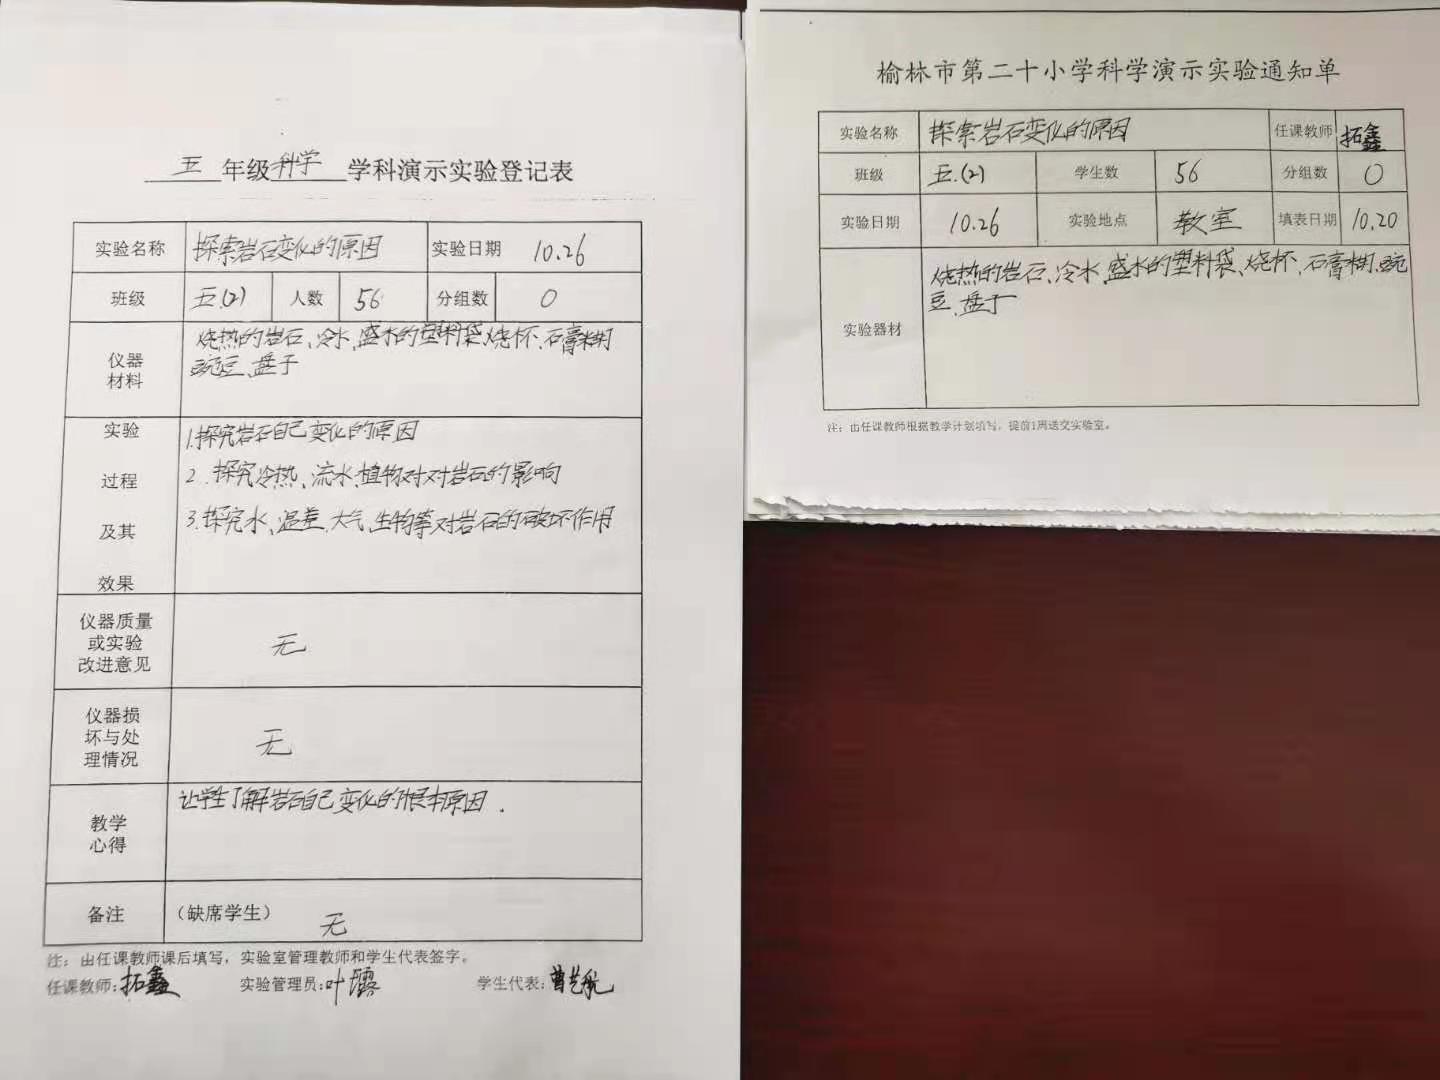 五年级科学学科演示实验登记表
实验名称 探索岩石变化的原因 实验日期 10.26
班级 五.(2) 人数 56 分组数 0
仪器
材料
烧热的岩石、冷水、盛水的塑料袋、烧杯、石膏糊
豌豆、盘子
实验
过程
及其
效果
1.探究岩石自己变化的原因
2.探究冷热、流水、植物对对岩石的影响
3.探究水、温差、大气、生物等对岩石的破坏作用
仪器质量
或实验
改进意见
无
仪器损
坏与处
理情况
无
教学
心得
让学生了解岩石自己变化的根本原因.
备注 (缺席学生) 无
注：由任课教师课后填写，实验室管理教师和学生代表签字。
任课教师:拓鑫 实验管理员:叶露 学生代表:曹艺航
榆林市第二十小学科学演示实验通知单
实验名称 探索岩石变化的原因 任课教师 拓鑫
班级 五.(2) 学生数 56 分组数 0
实验日期 10.26 实验地点 教室 填表日期 10.20
实验器材
烧热的岩石、冷水、盛水的塑料袋、烧杯、石膏糊、豌
豆、盘子
注：由任课教师根据教学计划填写，提前1周送交实验室。